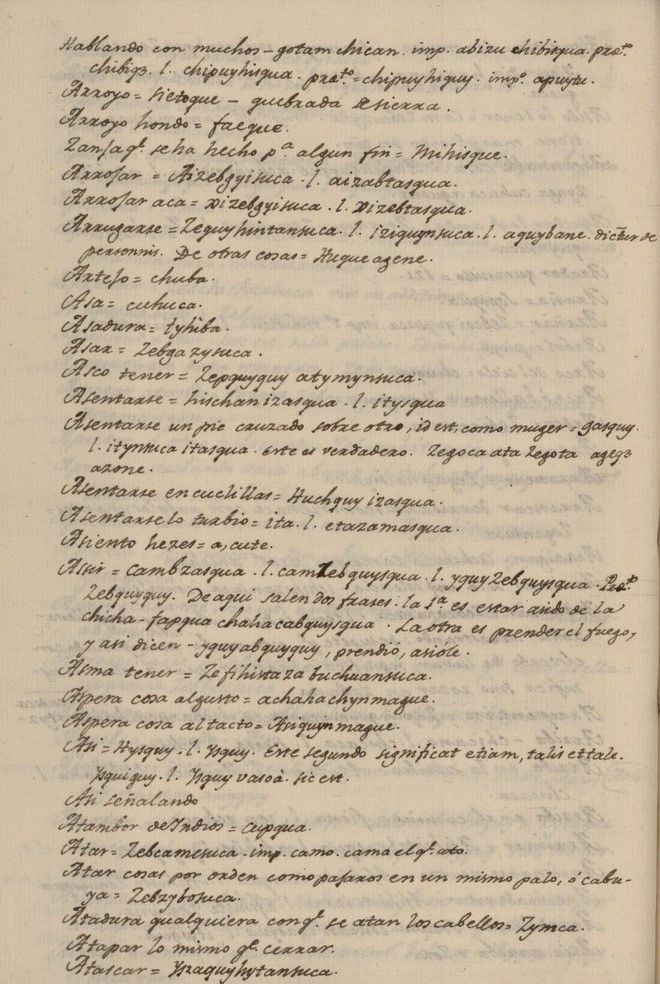 Hablando con muchos - gotam chican. imp. abizu chibisqua. præt.º
chibiqȝ. l. chipuyhisqua. præt.º = chipuyhiquy. imp.º apuytu.
Arroyo = sietoque - quebrada de sierra.
Arroyo hondo = faegue.
Zanja q.e se ha hecho p.a algun fin = Mihisque.
Arrojar = Aizebgyisuca. l. aizabtasqua.
Arrojar aca = xizebgyisuca. l. xizebtasqua.
Arrugarse = Zequyhintansuca. l. iziquynsuca. l. aquybane. dicitur de
personis. De otras cosas = Huque agene.
Artejo = chuba.
Asa = cuhuca.
Asadura = tyhiba.
Asar = Zebgazysuca.
Asco tener = Zepquyquy atymynsuca.
Asentarse = hischan izasqua. l. itysqua
Asentarse un pie cruzado sobre otro, id est, como muger = gasquy.
l. itynsuca itasqua. Este es verdadero. Zegoca ata Zegota ageqȝ
azone.
Asentarse en cuclillas = Huchquy izasqua.
Asentarse lo turbio = ita. l. etazamasqua.
Asiento hezes = a, cute.
Assir = cambzasqua. l. camzebquysqua. l. yquyzebquysqua. Præt.º
Zebquyquy. De aqui salen dos frases: la 1.a es estar asido de la
chicha - fapqua chahacabquysqua. La otra es prender el fuego,
y asi dicen - yquyabquyquy, prendió, asióse.
Asma tener = Zefihistaza buchuansuca.
Aspera cosa al gusto = achahachynmague.
Aspera cosa al tacto = Asiquynmague.
Asi = Hysquy. l. ysquy. Este segundo significat etiam, talis et tale.
ysquiguy. l. ysquy vasoà. sic est.
Asi señalando
Atambor de Indios = cupqua.
Atar = Zebcamesuca. imp. camo. cama el q.e ato.
Atar cosas por orden como pajaros en un mismo palo, ó cabu-
ya = Zebzybosuca.
Atadura qualquiera con q.e se atan los cabellos = Zymca.
Atapar lo mismo q.e cerrar.
Atascar = yszaquyhytansuca.